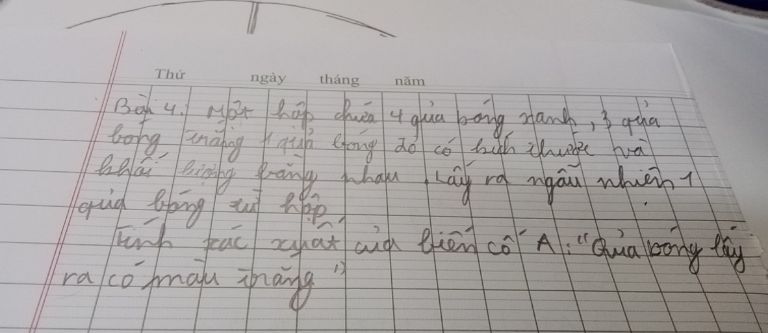 Thứ ngày tháng năm
Bài 4: Một hộp chứa 4 quả bóng xanh, 3 quả
bóng trắng 1 quả bóng đỏ có kích thước và
khối lượng bằng nhau. Lấy ra ngẫu nhiên 1
quả bóng từ hộp
Tính xác xuất của biến cố A: "Quả bóng lấy
ra có màu trắng"